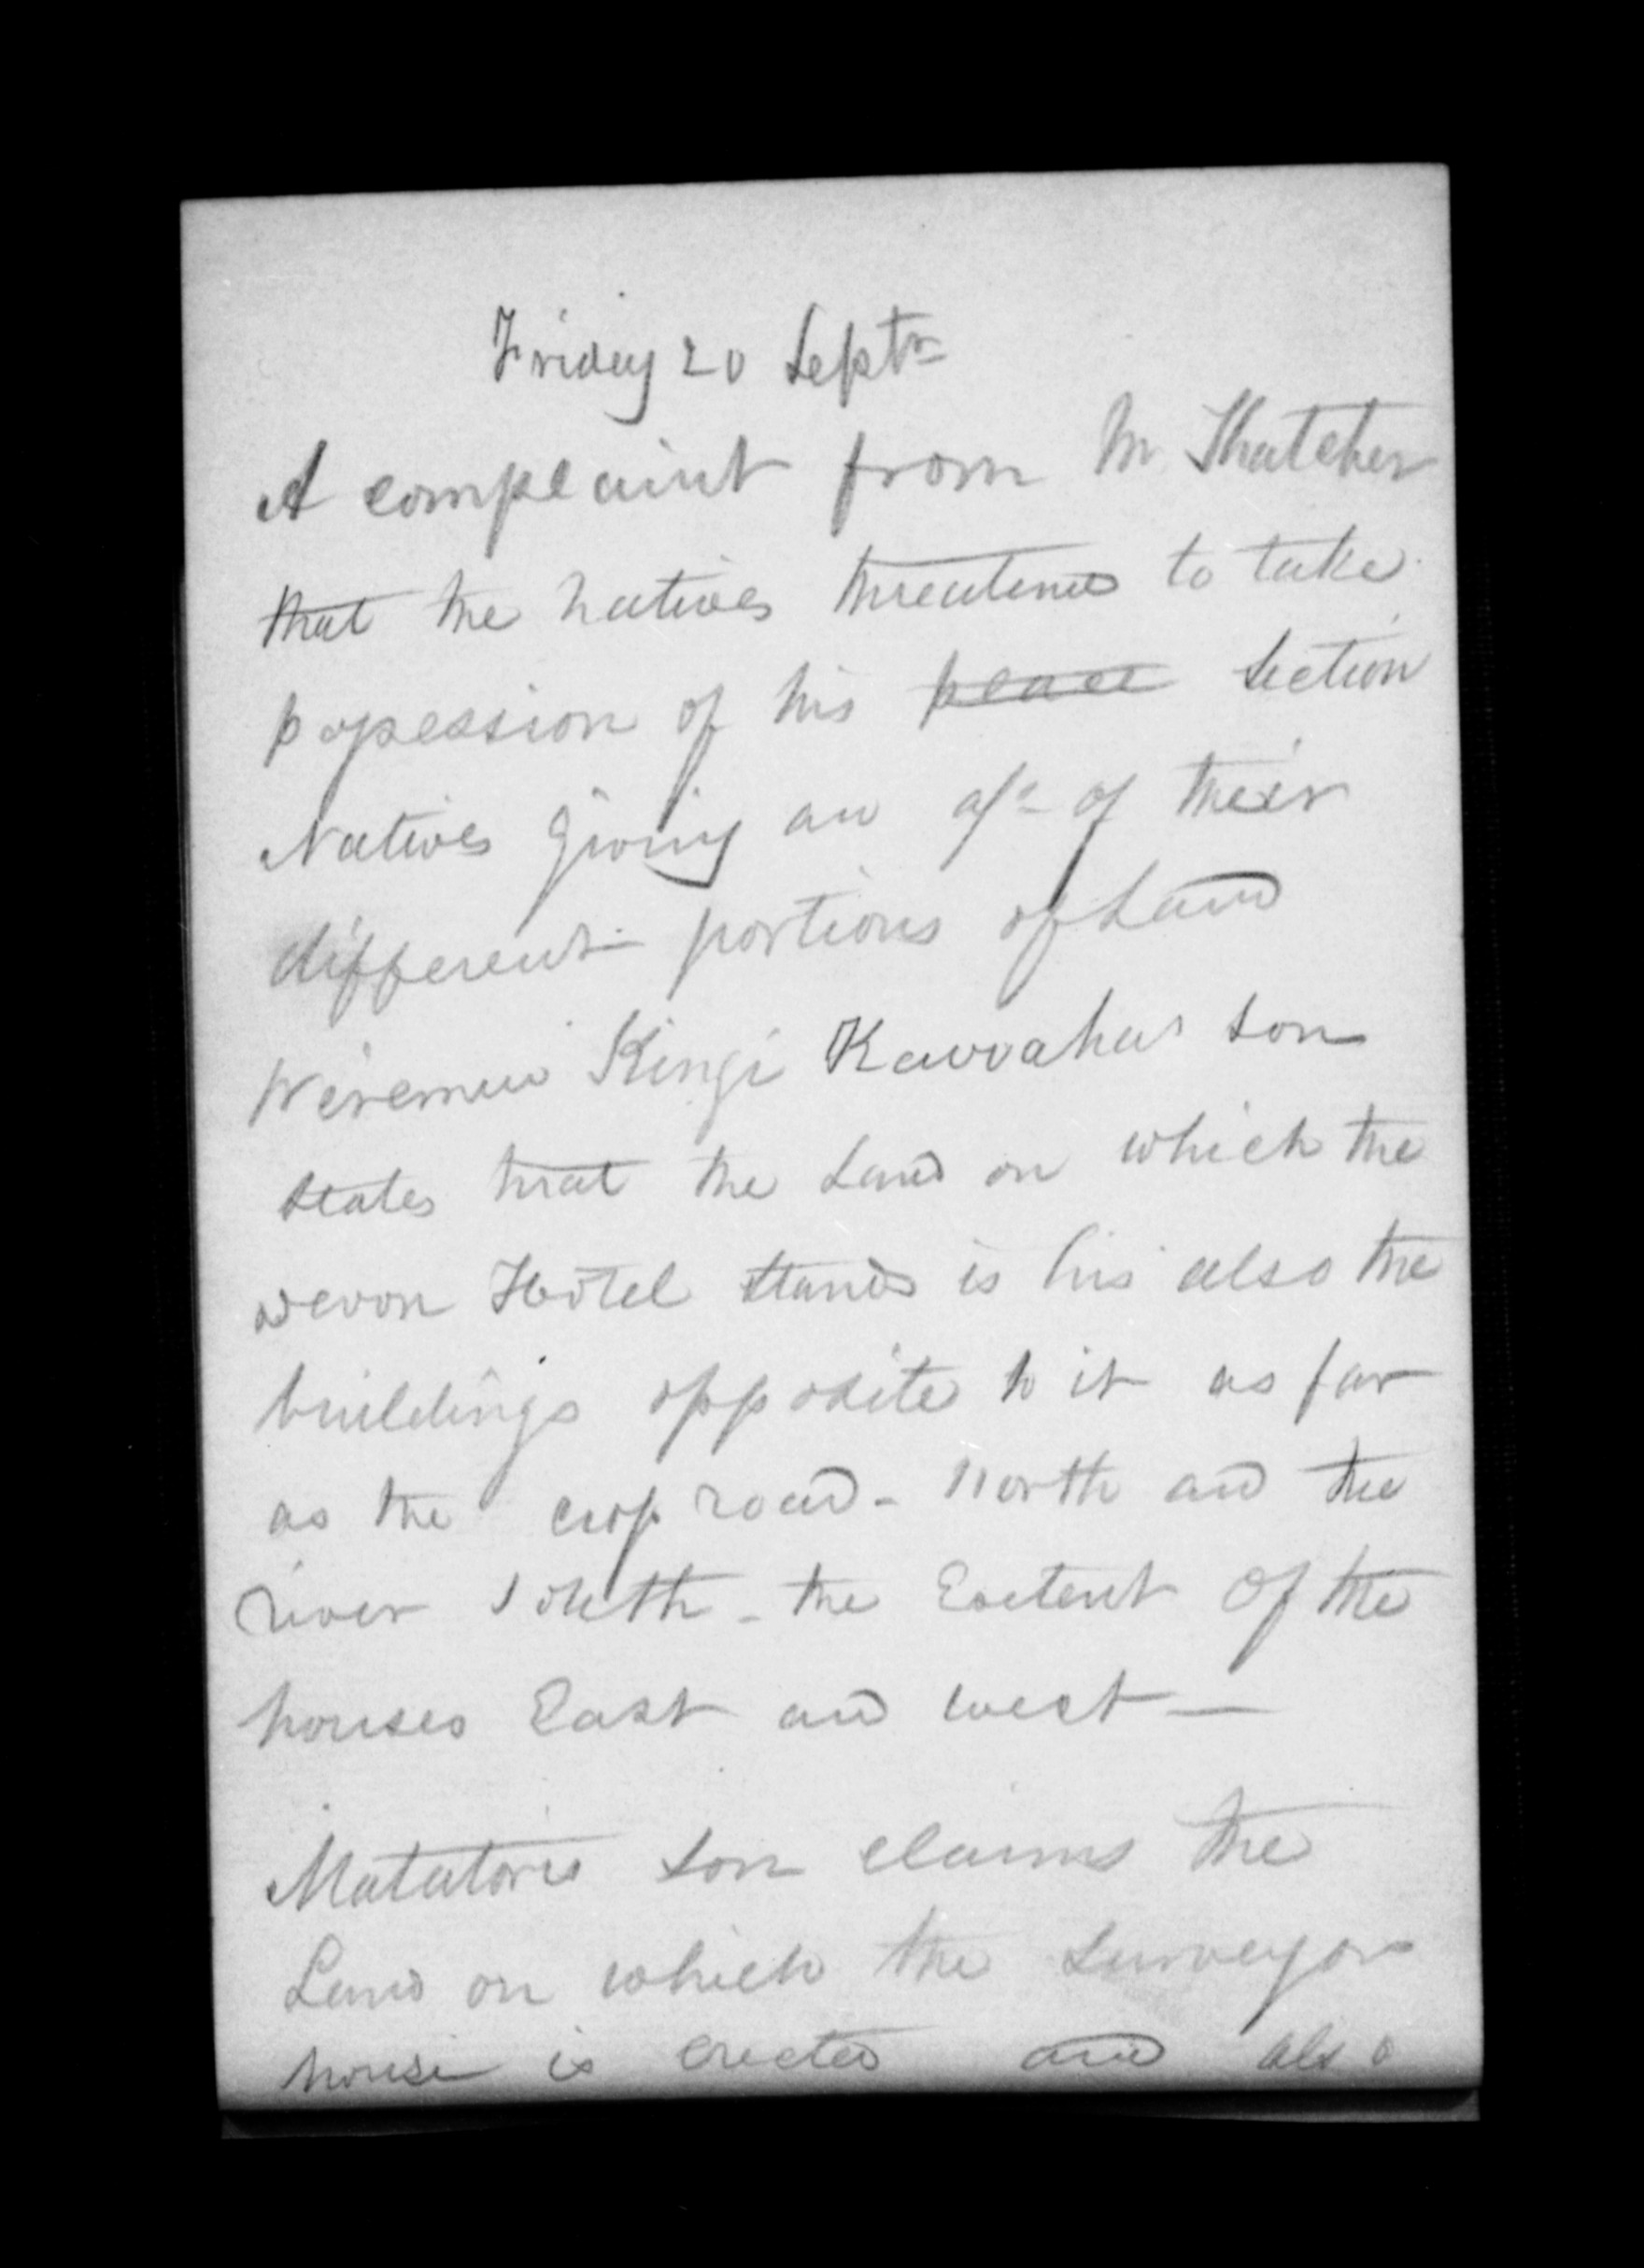 Friday 20 Septr
A complaint from Mr Thatcher
that the natives threatened to take
possession of his ~~place~~ section
Natives giving an a/c of their
different portions of Land
Weremui Kingi Kawahas son
states that the Land on which the
Devon Hotel stands is his also the
buildings opposite to it as far
as the cross road - North and the
river South - the Extent of the
houses East and west —
Matatoris son claims the
Land on which the surveyors
house is erected and also